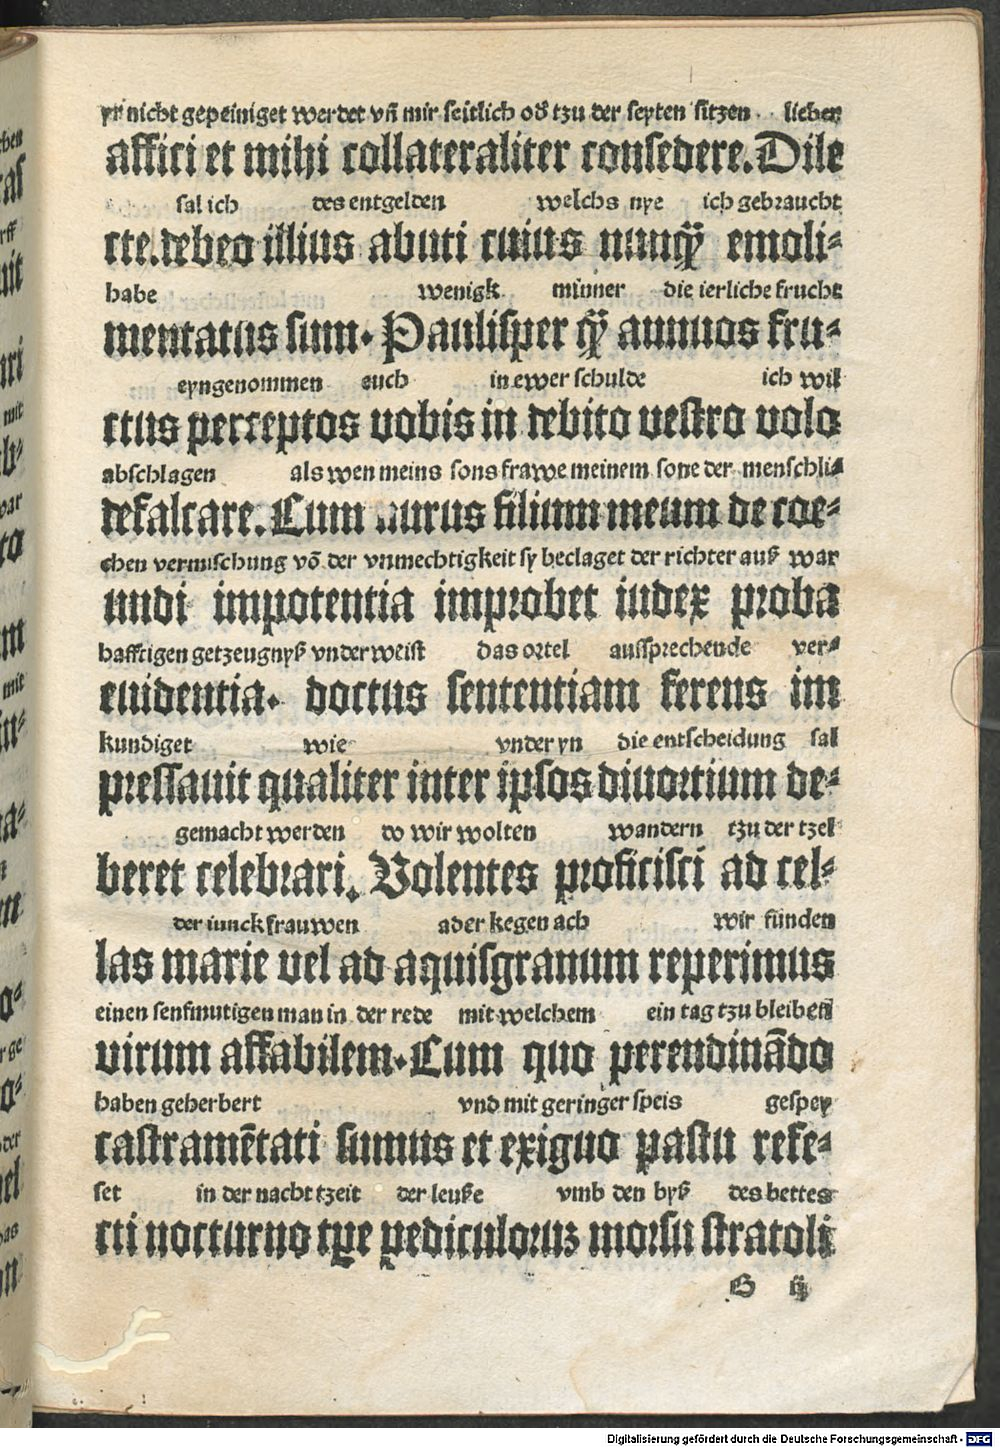 yr nicht gepeiniget werdet vñ mir seitlich od̕ tzu der seyten sitzen lieber
affici et mihi collateraliter consedere. Dile
sal ich des entgelden welchs nye ich gebraucht
cte. debeo illius abuti cuius nunꝙ̃ emoli⸗
habe wenigk minner die ierliche frucht
mentatus sum. Paulisper ꝙ̃ annuos fru⸗
eyngenommen euch in ewer schulde ich wil
ctus perceptos uobis in debito uestro uolo
abschlagen als wen meins sons frawe meinem sone der menschli⸗
defalcare. Cum nurus filium meum de coe⸗
chen vermischung võ der vnmechtigkeit sy beclaget der richter auß war
undi impotentia improbet iudex proba
hafftigen getzeugnyß vnderweist das ortel aussprechende ver⸗
euidentia. doctus sententiam ferens im
kundiget wie vnder yn die entscheidung sal
pressauit qualiter inter ipsos diuortium de⸗
gemacht werden do wir wolten wandern tzu der tzel
beret celebrari. Volentes proficisci ad cel⸗
der iunckfrauwen ader kegen ach wir funden
las marie uel ad aquisgranum reperimus
einen senfmutigen man in der rede mit welchem ein tag tzu bleiben
uirum affabilem. Cum quo perendinãdo
haben geherbert vnd mit geringer speis gespey
castramẽtati sumus et exiguo pastu refe⸗
set in der nacht tzeit der leuße vmb den byß des bettes
cti nocturno tp̄e pediculoruz morsu stratoli
G ij
Digitalisierung gefördert durch die Deutsche Forschungsgemeinschaft - DFG